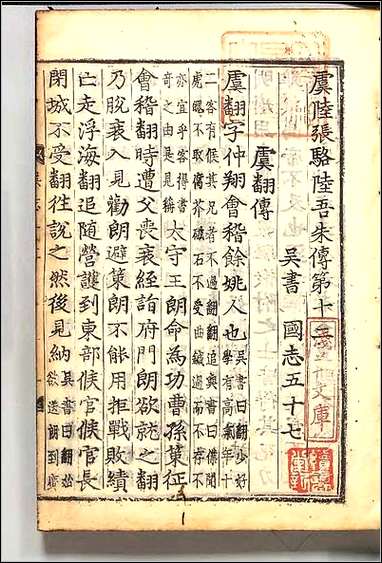 虞陸張駱陸吾朱傳第十
吳書 國志五十七
虞翻傳
虞翻字仲翔會稽餘姚人也吳書曰翻少好學有高氣年十
二客有候其兄者不過翻翻追與書曰僕聞
虎魄不取腐芥磁石不受曲鍼過而不存不
亦宜乎客得書奇之由是見稱太守王朗命為功曹孫策征
會稽翻時遭父喪衰絰詣府門朗欲就之翻
乃脫衰入見勸朗避策朗不能用拒戰敗績
亡走浮海翻追隨營護到東部候官候官長
閉城不受翻往說之然後見納吳書曰翻始欲送朗到廣